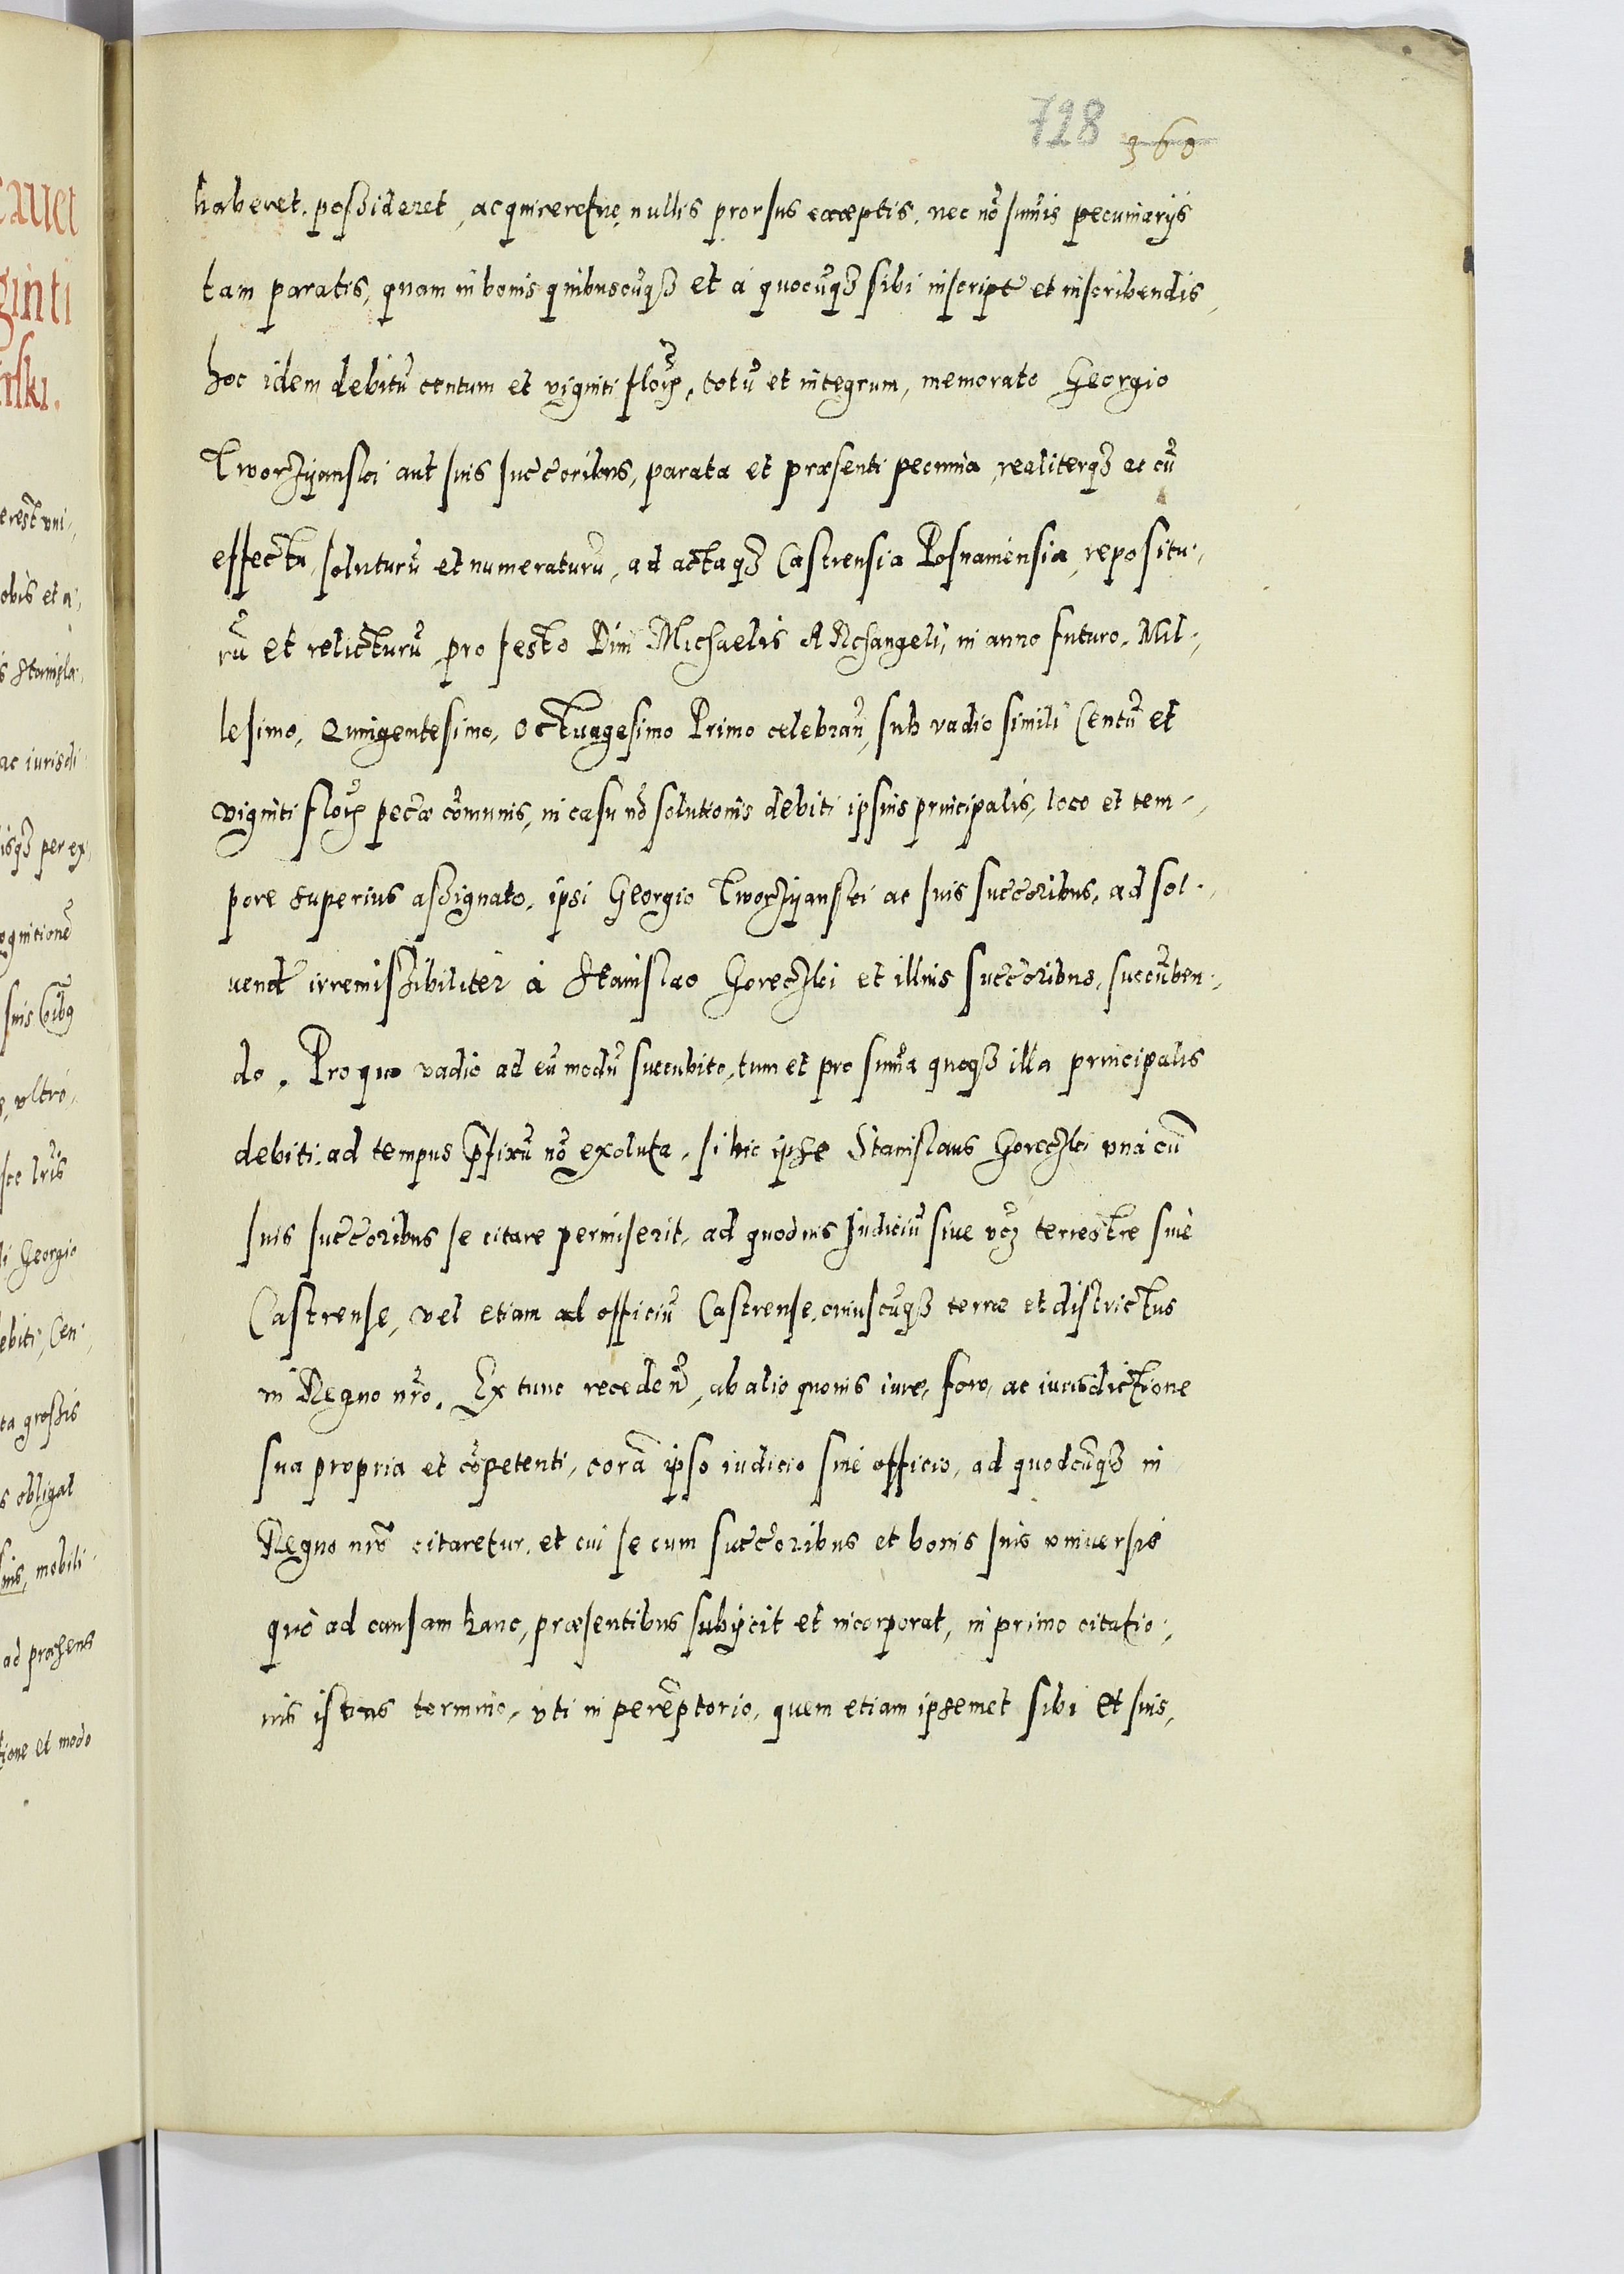 728 360
haberet. possideret, acquireretue, nullis prorsus exceptis, nec nō sum̄is pecuniarijs
tam paratis, quam in bonis quibuscūqꝫ et à quocūqꝫ sibi inscript et inscribendis,
hoc idem debitū centum et viginti floꝝ, totū et integrum, memorato Georgio
Tworzÿanski aut suis succ̄oribus, parata et præsenti pecunia, realiterqꝫ ac cū
effectu, soluturū et numeraturū, ad actaqꝫ Castrensia Posnaniensia, repositu-
rū et relicturū pro festo Diui Michaelis Archangeli, in anno futuro, Mil-
lesimo, Quingentesimo, Octuagesimo Primo celebran̄, sub vadio simili Centū et
viginti floꝝ pec̄æ com̄unis, in casu nō solutionis debiti ipsius principalis, loco et tem-
pore superius assignato, ipsi Georgio Tworzÿanski ac suis succ̄oribus, ad sol-
uend irremissibiliter à Stanislao Goreczki et illius succ̄oribus, succūben-
do. Pro quo vadio ad eū modū succubito, tum et pro sum̄a quoqꝫ illa principalis
debiti, ad tempus p̄fixū nō exoluta, si hic ipse Stanislaus Goreczki vnà cū
suis succ̄oribus se citare permiserit, ad quoduis Judiciū siue vꝫ terrestre siue
Castrense, vel etiam ad officiū Castrense, cuiuscūqꝫ terræ et districtus
in Regno nr̄o. Ex tunc receden̄, ab alio quouis iure, foro, ac iurisdictione
sua propria et cōpetenti, corā ipso iudicio siue officio, ad quodcūqꝫ in
Regno nr̄o citaretur, et cui se cum succ̄oribus et bonis suis vniuersis
quò ad causam hanc, præsentibus subÿcit et incorporat, in primo citatio-
nis istius termino, vti in perēptorio, quem etiam ipsemet sibi et suis,